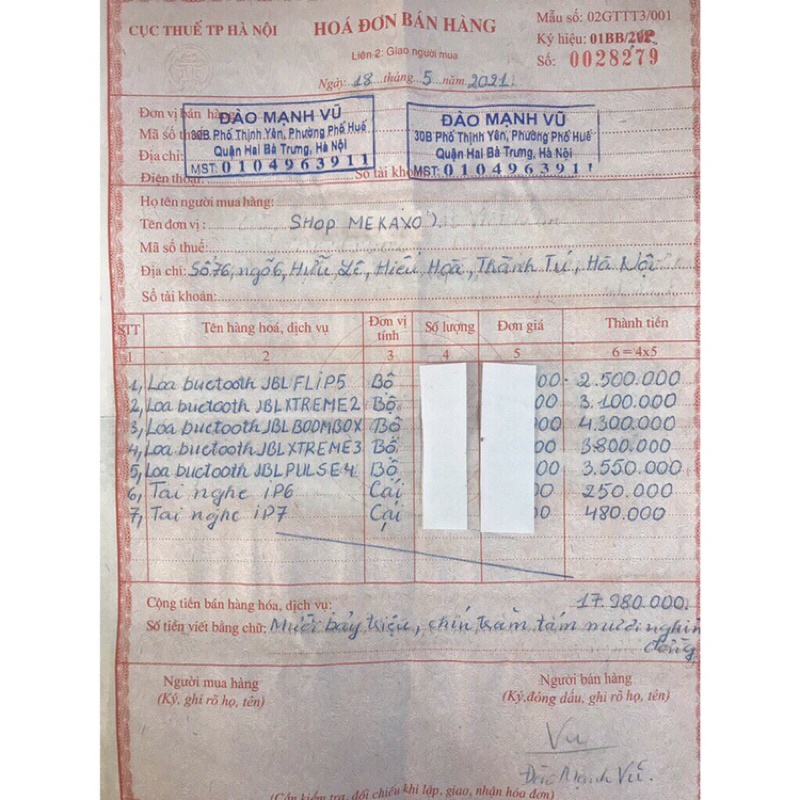 CỤC THUẾ TP HÀ NỘI
HOÁ ĐƠN BÁN HÀNG
Liên 2: Giao người mua
Ngày 18 tháng 5 năm 2021
Mẫu số: 02GTTT3/001
Ký hiệu: 01BB/20P
Số: 0028279
Đơn vị bán hàng
ĐÀO MẠNH VŨ
30B Phố Thịnh Yên, Phường Phố Huế
Quận Hai Bà Trưng, Hà Nội
MST: 0104963911
ĐÀO MẠNH VŨ
30B Phố Thịnh Yên, Phường Phố Huế
Quận Hai Bà Trưng, Hà Nội
MST: 0104963911
Mã số
Địa chỉ:
Điện thoại: Số tài kho
Họ tên người mua hàng:
Tên đơn vị: SHOP MEKAXO
Mã số thuế:
Địa chỉ: Số 76, ngõ 6, Hữu Lê, Hiếu Hoà, Thành Tú, Hà Nội
Số tài khoản:
STT Tên hàng hoá, dịch vụ Đơn vị tính Số lượng Đơn giá Thành tiền
1 2 3 4 5 6 = 4x5
1, Loa buctooth JBL FLIP5 Bộ 00 2.500.000
2, Loa buctooth JBL XTREME2 Bộ 00 3.100.000
3, Loa buctooth JBL BOOMBOX Bộ 00 4.300.000
4, Loa buctooth JBL XTREME3 Bộ 00 3.800.000
5, Loa buctooth JBL PULSE 4 Bộ 00 3.550.000
6, Tai nghe iP6 Cái 00 250.000
7, Tai nghe iP7 Cái 00 480.000
Cộng tiền bán hàng hóa, dịch vụ: 17.980.000
Số tiền viết bằng chữ: Mười bảy triệu, chín trăm tám mươi nghìn
đồng
Người mua hàng
(Ký, ghi rõ họ, tên)
Người bán hàng
(Ký, đóng dấu, ghi rõ họ, tên)
Vu
Đào Mạnh Vũ
(Cần kiểm tra, đối chiếu khi lập, giao, nhận hóa đơn)